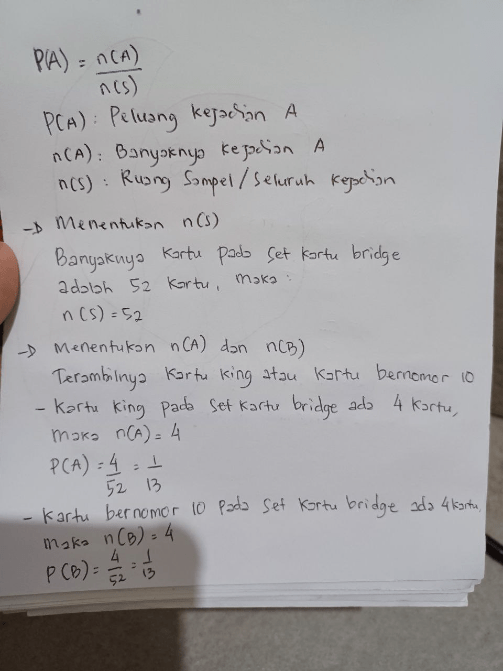 P(A) = n(A)
n(S)
P(A) : Peluang kejadian A
n(A) : Banyaknya kejadian A
n(S) : Ruang Sampel / Seluruh kejadian
→ Menentukan n(S)
Banyaknya kartu pada set kartu bridge
adalah 52 kartu, maka :
n(S) = 52
→ Menentukan n(A) dan n(B)
Terambilnya kartu king atau kartu bernomor 10
- Kartu king pada set kartu bridge ada 4 kartu,
maka n(A) = 4
P(A) = 4/52 = 1/13
- Kartu bernomor 10 pada set kartu bridge ada 4 kartu,
maka n(B) = 4
P(B) = 4/52 = 1/13